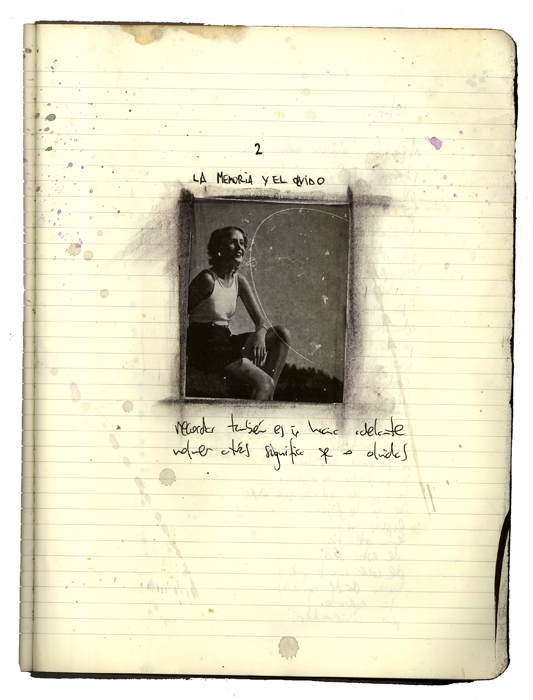 2
LA MEMORIA Y EL OLVIDO
recordar también es ir hacia adelante
volver atrás significa que no olvidas